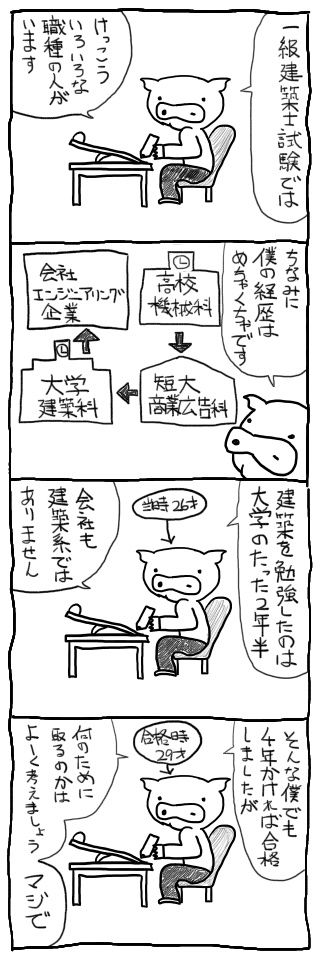 一級建築士試験では
けっこう
いろいろな
職種の人が
います
ちなみに
僕の経歴は
めちゃくちゃです
高校
機械科
短大
商業広告科
大学
建築科
会社
エンジニアリング
企業
建築を勉強したのは
大学のたった2年半
当時26才
会社も
建築系では
ありません
そんな僕でも
4年かければ合格
しましたが
合格時
29才
何のために
取るのかは
よーく考えましょう
マジで